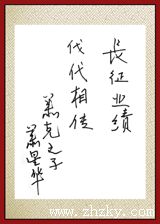 长征业绩
代代相传
萧克之子
萧星华
www.zhzky.com